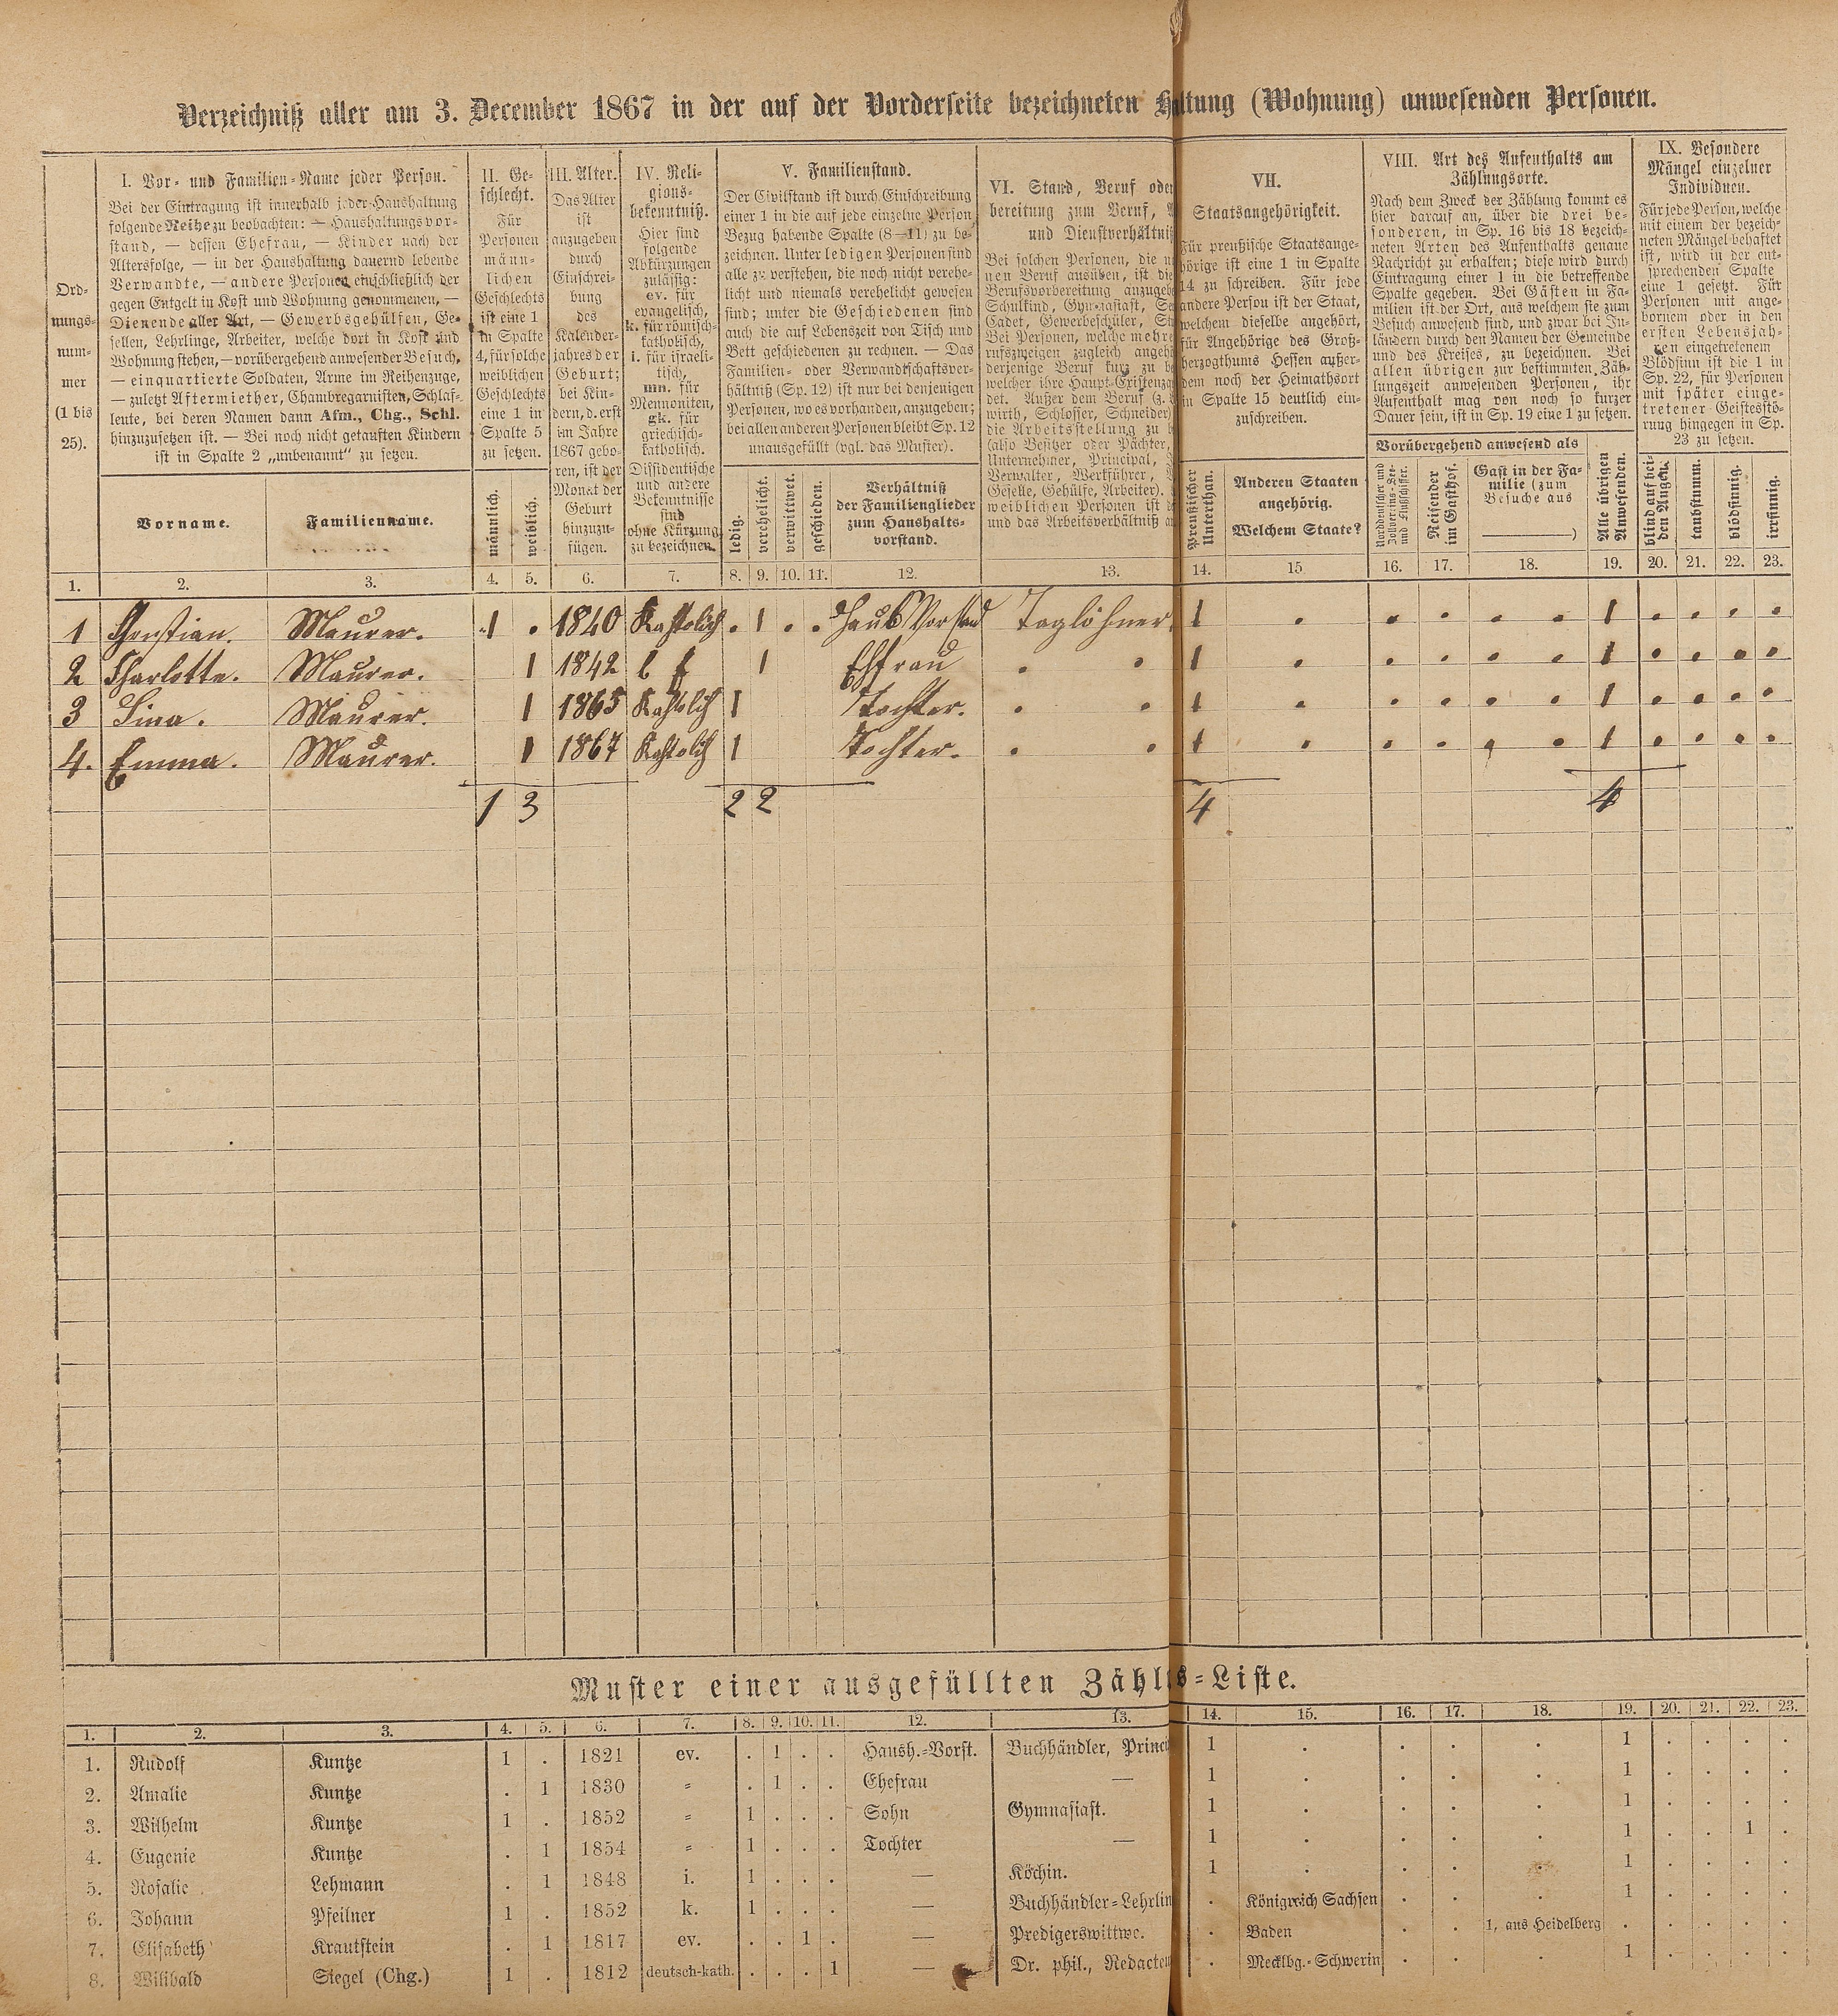 Verzeichniß aller am 3. December 1867 in der auf der Vorderseite bezeichneten Haltung (Wohnung) anwesenden Personen.
Ord-
nungs-
num-
mer
(1 bis
25).
I. Vor- und Familien-Name jeder Person.
Bei der Eintragung ist innerhalb jeder Haushaltung
folgende Reihe zu beobachten: — Haushaltungsvor-
stand, — dessen Ehefrau, — Kinder nach der
Altersfolge, — in der Haushaltung dauernd lebende
Verwandte, — andere Personen einschließlich der
gegen Entgelt in Kost und Wohnung genommenen, —
Dienende aller Art, — Gewerbsgehülfen, Ge-
sellen, Lehrlinge, Arbeiter, welche dort in Kost und
Wohnung stehen, — vorübergehend anwesender Besuch,
— einquartierte Soldaten, Arme im Reihenzuge,
— zuletzt Aftermiether, Chambregarnisten, Schlaf-
leute, bei deren Namen dann Afm., Chg., Schl.
hinzuzusetzen ist. — Bei noch nicht getauften Kindern
ist in Spalte 2 „unbenannt" zu setzen.
Vorname.
Familienname.
II. Ge-
schlecht.
Für
Personen
männ-
lichen
Geschlechts
ist eine 1
in Spalte
4, für solche
weiblichen
Geschlechts
eine 1 in
Spalte 5
zu setzen.
männlich.
weiblich.
III. Alter.
Das Alter
ist
anzugeben
durch
Einschrei-
bung
des
Kalender-
jahres der
Geburt;
bei Kin-
dern, d. erst
im Jahre
1867 gebo-
ren, ist der
Monat der
Geburt
hinzuzu-
fügen.
IV. Reli-
gions-
bekenntniß.
Hier sind
folgende
Abkürzungen
zulässig:
ev. für
evangelisch,
k. für römisch-
katholisch,
i. für israeli-
tisch,
mn. für
Mennoniten,
gk. für
griechisch-
katholisch.
Dissidentische
und andere
Bekenntnisse
sind
ohne Kürzung
zu bezeichnen.
V. Familienstand.
Der Civilstand ist durch Einschreibung
einer 1 in die auf jede einzelne Person
Bezug habende Spalte (8—11) zu be-
zeichnen. Unter ledigen Personen sind
alle zu verstehen, die noch nicht verehe-
licht und niemals verehelicht gewesen
sind; unter die Geschiedenen sind
auch die auf Lebenszeit von Tisch und
Bett geschiedenen zu rechnen. — Das
Familien- oder Verwandtschaftsver-
hältniß (Sp. 12) ist nur bei denjenigen
Personen, wo es vorhanden, anzugeben;
bei allen anderen Personen bleibt Sp. 12
unausgefüllt (vgl. das Muster).
ledig.
verehelicht.
verwittwet.
geschieden.
Verhältniß
der Familienglieder
zum Haushalts-
vorstand.
VI. Stand, Beruf oder
bereitung zum Beruf,
und Dienstverhältniß
Bei solchen Personen, die
nen Beruf ausüben, ist die
Berufsvorbereitung anzugeben
Schulkind, Gymnasiast,
Cadet, Gewerbeschüler,
Bei Personen, welche mehre
rufszweigen zugleich angehö
derjenige Beruf kurz zu be
welcher ihre Haupt-Existenzq
det. Außer dem Beruf (z.
wirth, Schlosser, Schneider)
die Arbeitsstellung zu b
(also Besitzer oder Pächter,
Unternehmer, Principal,
Verwalter, Werkführer,
Geselle, Gehülfe, Arbeiter).
weiblichen Personen ist
und das Arbeitsverhältniß
VII.
Staatsangehörigkeit.
Für preußische Staatsange-
hörige ist eine 1 in Spalte
14 zu schreiben. Für jede
andere Person ist der Staat,
welchem dieselbe angehört,
für Angehörige des Groß-
herzogthums Hessen außer-
dem noch der Heimathsort
in Spalte 15 deutlich ein-
zuschreiben.
Preußischer
Unterthan.
Anderen Staaten
angehörig.
Welchem Staate?
VIII. Art des Aufenthalts am
Zählungsorte.
Nach dem Zweck der Zählung kommt es
hier darauf an, über die drei be-
sonderen, in Sp. 16 bis 18 bezeich-
neten Arten des Aufenthalts genaue
Nachricht zu erhalten; diese wird durch
Eintragung einer 1 in die betreffende
Spalte gegeben. Bei Gästen in Fa-
milien ist der Ort, aus welchem sie zum
Besuch anwesend sind, und zwar bei In-
ländern durch den Namen der Gemeinde
und des Kreises, zu bezeichnen. Bei
allen übrigen zur bestimmten Zäh-
lungszeit anwesenden Personen, ihr
Aufenthalt mag von noch so kurzer
Dauer sein, ist in Sp. 19 eine 1 zu setzen.
Vorübergehend anwesend als
Norddeutscher und
Zollvereins-See-
und Flußschiffer.
Reisender
im Gasthof.
Gast in der Fa-
milie (zum
Besuche aus
)
Alle übrigen
Anwesenden.
IX. Besondere
Mängel einzelner
Individuen.
Für jede Person, welche
mit einem der bezeich-
neten Mängel behaftet
ist, wird in der ent-
sprechenden Spalte
eine 1 gesetzt. Für
Personen mit ange-
bornem oder in den
ersten Lebensjah-
ren eingetretenem
Blödsinn ist die 1 in
Sp. 22, für Personen
mit später einge-
tretener Geistesstö-
rung hingegen in Sp.
23 zu setzen.
blind auf bei-
den Augen.
taubstumm.
blödsinnig.
irrsinnig.
1. 2. 3. 4. 5. 6. 7. 8. 9. 10. 11. 12. 13. 14. 15 16. 17. 18. 19. 20. 21. 22. 23.
1 Maurer. 1 . 1840 Katholich . 1 . . Taglöhner. 1 . . . . . 1 . . . .
2 Charlotte. Maurer. 1 1842 1 Ehfrau . . 1 . . . . . 1 . . . .
3 Lina. Maurer. 1 1865 Katholich 1 Tochter. . . 1 . . . . . 1 . . . .
4. Emma. Maurer. 1 1867 Katholich 1 Tochter. . . 1 . . . . . 1 . . . .
1 3 2 2 4 4
Muster einer ausgefüllten Zähl s-Liste.
1. 2. 3. 4. 5. 6. 7. 8. 9. 10. 11. 12. 13. 14. 15. 16. 17. 18. 19. 20. 21. 22. 23.
1. Rudolf Kuntze 1 . 1821 ev. . 1 . . Haush.-Vorst. Buchhändler, Princi 1 . . . . 1 . . . .
2. Amalie Kuntze . 1 1830 = . 1 . . Ehefrau — 1 . . . . 1 . . . .
3. Wilhelm Kuntze 1 . 1852 = 1 . . . Sohn Gymnasiast. 1 . . . . 1 . . . .
4. Eugenie Kuntze . 1 1854 = 1 . . . Tochter — 1 . . . . 1 . . 1 .
5. Rosalie Lehmann . 1 1848 i. 1 . . . — Köchin. 1 . . . . 1 . . . .
6. Johann Pfeilner 1 . 1852 k. 1 . . . — Buchhändler-Lehrlin . Königreich Sachsen . . . 1 . . . .
7. Elisabeth Krautstein . 1 1817 ev. . . 1 . — Predigerswittwe. . Baden . . 1, aus Heidelberg . . . . .
8. Wilibald Siegel (Chg.) 1 . 1812 deutsch-kath. . . . 1 — Dr. phil., Redacteu . Mecklbg.-Schwerin . . . 1 . . . .